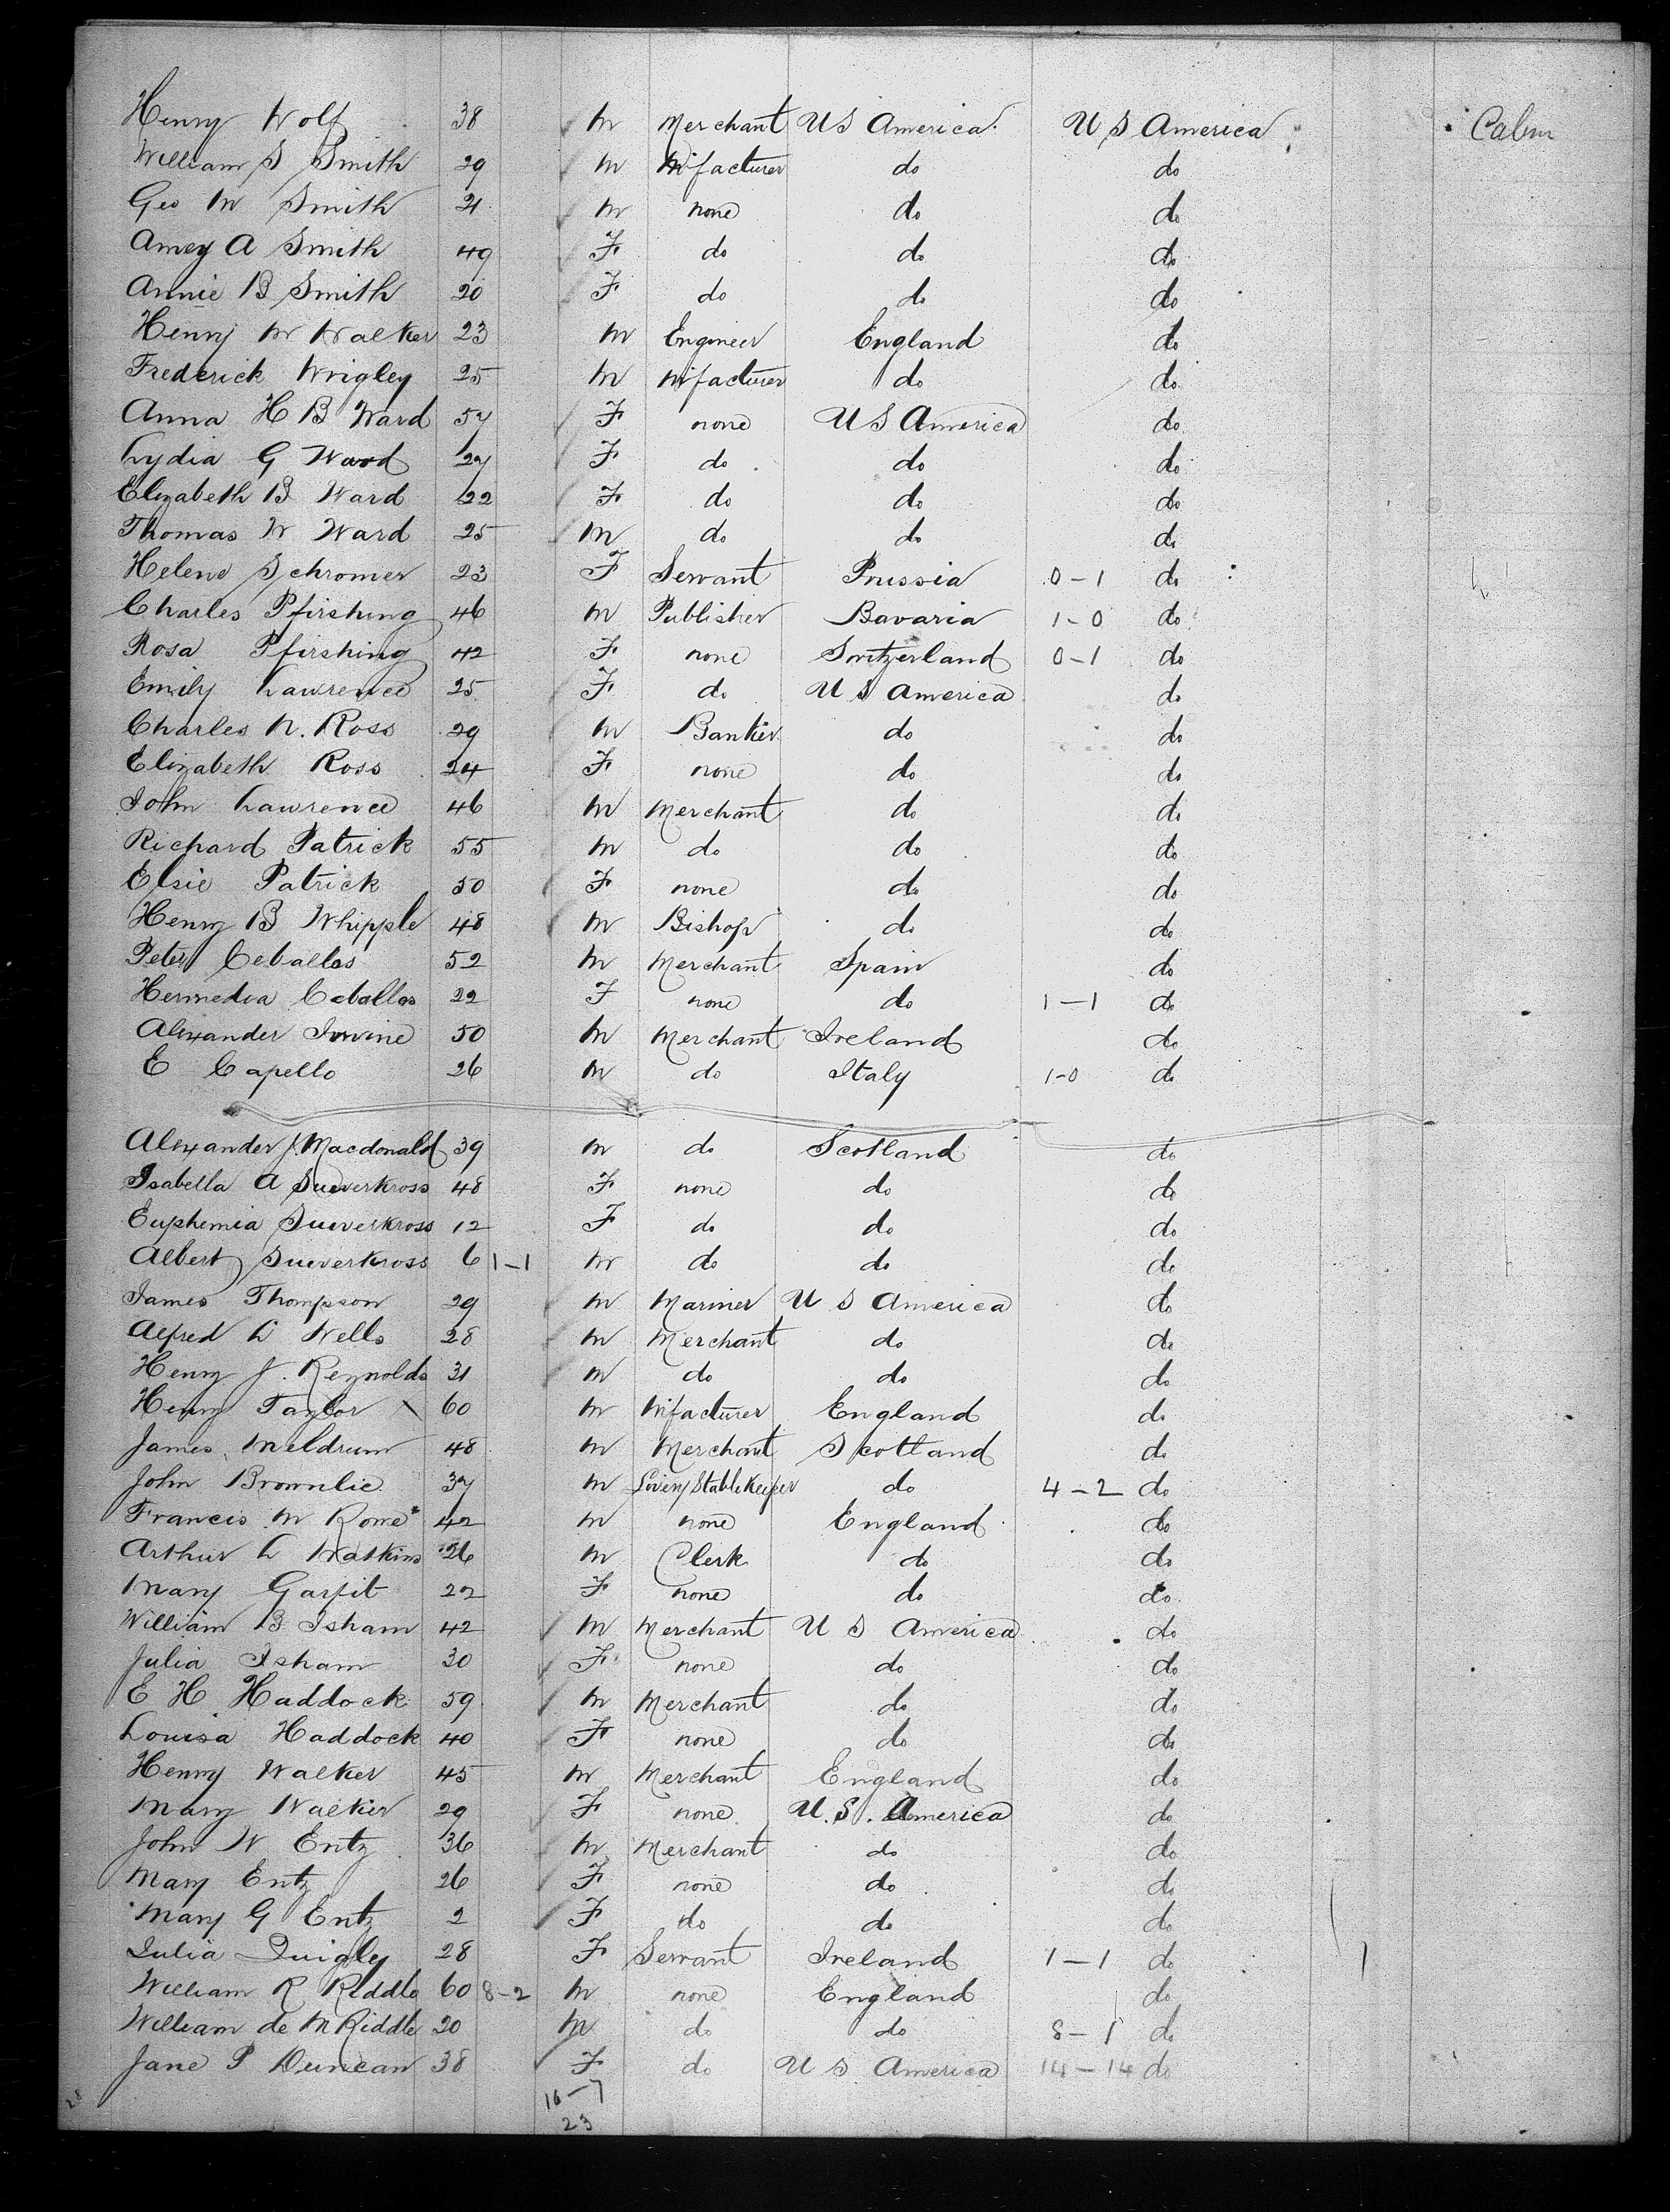 Henry Wolf 38 M Merchant U S America U S America Cabin
William S Smith 29 M M'facturer do do
Geo W Smith 21 M none do do
Amey A Smith 49 F do do do
Annie B Smith 20 F do do do
Henry W Walker 23 M Engineer England do
Frederick Wrigley 25 M M'facturer do do
Anna H B Ward 57 F none U S America do
Lydia G Ward 27 F do do do
Elizabeth B Ward 22 F do do do
Thomas W Ward 25 M do do do
Helene Schromer 23 F Servant Prussia 0-1 do
Charles Pfirshing 46 M Publisher Bavaria 1-0 do
Rosa Pfirshing 42 F none Switzerland 0-1 do
Emily Lawrence 25 F do U S America do
Charles N. Ross 29 M Banker do do
Elizabeth Ross 24 F none do do
John Lawrence 46 M Merchant do do
Richard Patrick 55 M do do do
Elsie Patrick 50 F none do do
Henry B Whipple 48 M Bishop do do
Peter Ceballos 52 M Merchant Spain do
Hermedia Ceballos 22 F none do 1-1 do
Alexander Irvine 50 M Merchant Ireland do
E Capello 26 M do Italy 1-0 do
Alexander J. Macdonald 39 M do Scotland do
Isabella A Sueverkross 48 F none do do
Euphemia Sueverkross 12 F do do do
Albert Sueverkross 6 1-1 M do do do
James Thompson 29 M Mariner U S America do
Alfred L Wells 28 M Merchant do do
Henry J. Reynolds 31 M do do do
Henry Taylor 60 M M'facturer England do
James Meldrum 48 M Merchant Scotland do
John Brownlie 37 M Livery Stable Keeper do 4-2 do
Francis W Rowe 42 M none England do
Arthur L Watkins 26 M Clerk do do
Mary Garfit 22 F none do do
William B Isham 42 M Merchant U S America do
Julia Isham 30 F none do do
E H Haddock 59 M Merchant do do
Louisa Haddock 40 F none do do
Henry Walker 45 M Merchant England do
Mary Walker 29 F none U.S. America do
John W Entz 36 M Merchant do do
Mary Entz 26 F none do do
Mary G Entz 2 F do do do
Julia Quigley 28 F Servant Ireland 1-1 do
William R Riddle 60 8-2 M none England do
William de M Riddle 20 M do do 8-1 do
Jane P Duncan 38 F do U S America 14-14 do
16-7
23
28